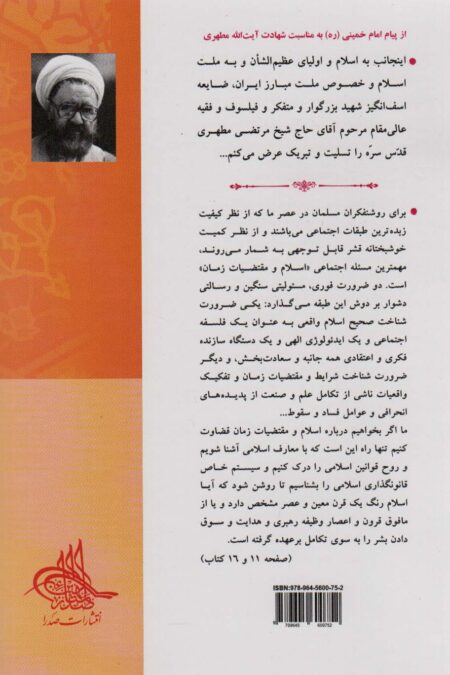 از پیام امام خمینی (ره) به مناسبت شهادت آیت‌الله مطهری
اینجانب به اسلام و اولیای عظیم‌الشأن و به ملت
اسلام و خصوص ملت مبارز ایران، ضایعه
اسف‌انگیز شهید بزرگوار و متفکر و فیلسوف و فقیه
عالی‌مقام مرحوم آقای حاج شیخ مرتضی مطهری
قدّس سرّه را تسلیت و تبریک عرض می‌کنم...
برای روشنفکران مسلمان در عصر ما که از نظر کیفیت
زبده‌ترین طبقات اجتماعی می‌باشند و از نظر کمیت
خوشبختانه قشر قابل توجهی به شمار می‌روند،
مهمترین مسئله اجتماعی «اسلام و مقتضیات زمان»
است. دو ضرورت فوری، مسئولیتی سنگین و رسالتی
دشوار بر دوش این طبقه می‌گذارد: یکی ضرورت
شناخت صحیح اسلام واقعی به عنوان یک فلسفه
اجتماعی و یک ایدئولوژی الهی و یک دستگاه سازنده
فکری و اعتقادی همه جانبه و سعادت‌بخش، و دیگر
ضرورت شناخت شرایط و مقتضیات زمان و تفکیک
واقعیات ناشی از تکامل علم و صنعت از پدیده‌های
انحرافی و عوامل فساد و سقوط...
ما اگر بخواهیم درباره اسلام و مقتضیات زمان قضاوت
کنیم تنها راه این است که با معارف اسلامی آشنا شویم
و روح قوانین اسلامی را درک کنیم و سیستم خاص
قانونگذاری اسلامی را بشناسیم تا روشن شود که آیا
اسلام رنگ یک قرن معین و عصر مشخص دارد و یا از
مافوق قرون و اعصار وظیفه رهبری و هدایت و سوق
دادن بشر را به سوی تکامل برعهده گرفته است.
(صفحه ۱۱ و ۱۶ کتاب)
ISBN: 978-964-5600-75-2
9 789645 600752
انتشارات صدرا